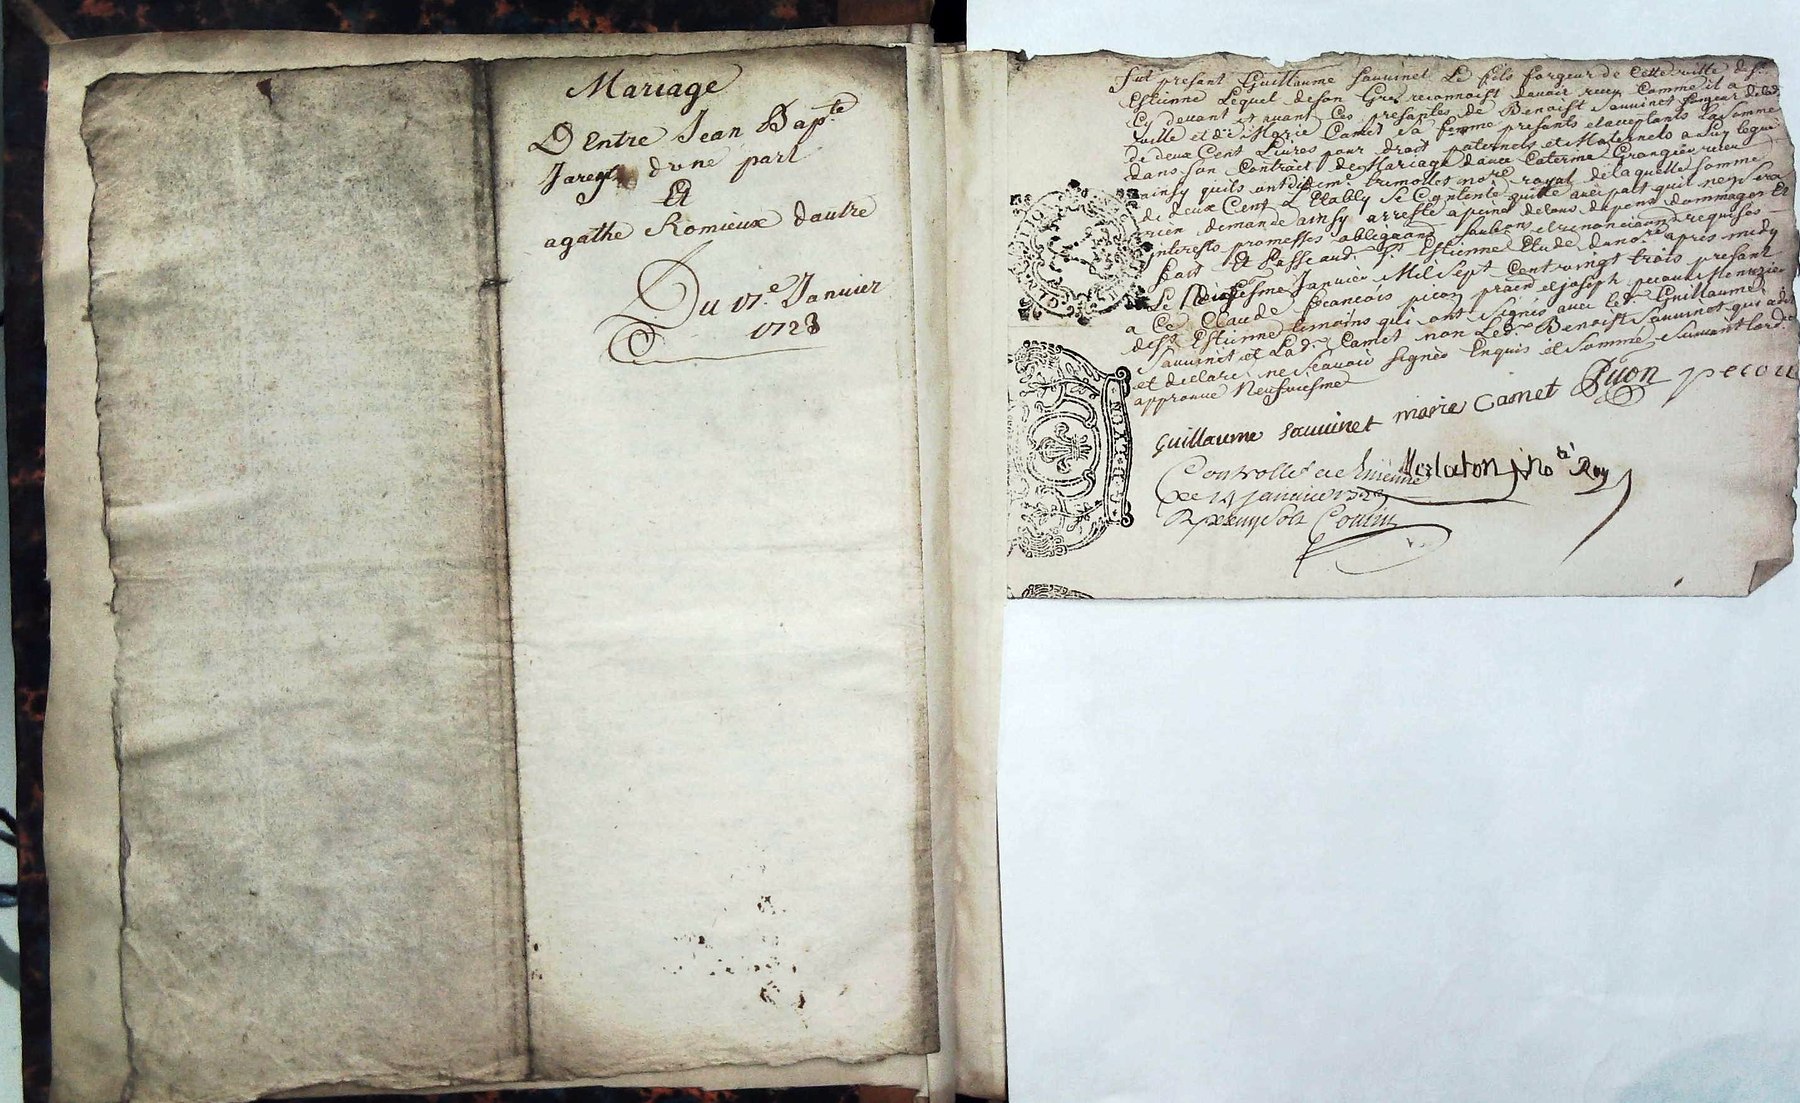 Mariage
D Entre Jean Bapte
d'une part
Et
agathe Romieux dautre
Du 17e Janvier
1723
fut present Guillaume Sauvinet Le fils forgeur de Cette ville de
Estienne Lequel de son Gré reconnoist davoir receu Comme il a
Cy devant et avant Ces presantes de Benoist Sauvinet forgeur de lad
ville et de Marie Camet sa femme presants et acceptants La somme
de deux Cent Livres pour droit paternels et Maternels a luy
dans son Contrait de Mariage avec Caterine Grangier receu
ainsy quils ont dit Me trimollet nore royal de laquelle somme
de deux Cent L Etably se Contente quitte avec pact quil nen sera
rien demandé ainsy arresté a peine de tous depens dommages Et
interests promesses obligaons et renonciaons requises
fait Et passé aud St Estienne Etude du nore apres midy
Le Janvier Mil sept Cent vingt trois presant
a Ce Claude francois picon pratn et joseph pecou Menuzier
de St Estienne temoins qui ont signés avec led Guillaume
Sauvinet et Lad Camet non Led Benoist Sauvinet qui a dit
et declaré ne scavoir signer Enquis et sommé suivant lord.e
approuvé Neufviesme
guillaume sauvinet marie Camet Picon pecou
Controllé a St Etienne note Roy
Le 19 janvier 1723